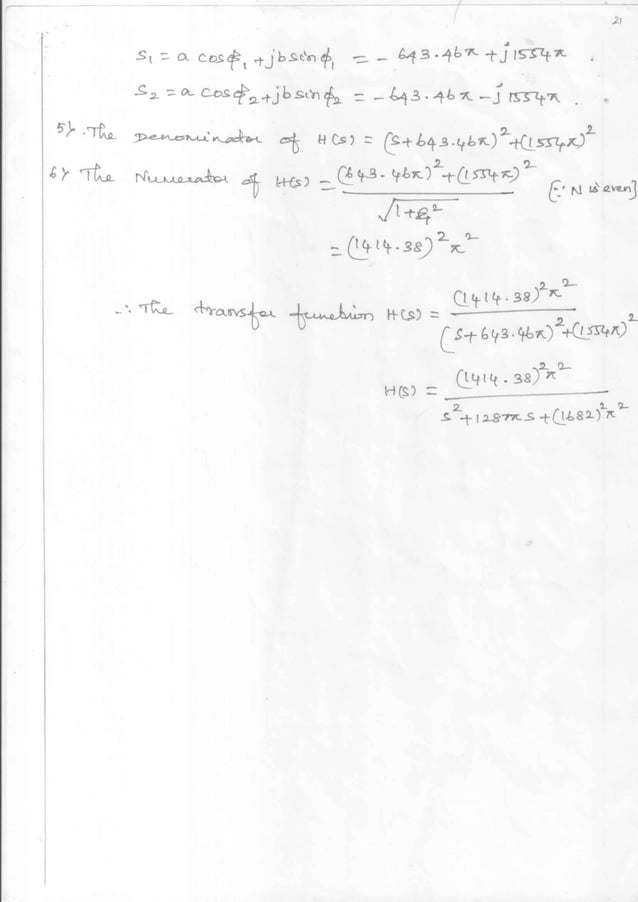 21
S₁ = a cosϕ₁ + jb sinϕ₁ = - 643.46π + j1554π .
S₂ = a cosϕ₂ + jb sinϕ₂ = - 643.46π - j1554π .
5) . The Denominator of H(s) = (S+643.46π)² + (1554π)²
6) The Numerator of H(s) = (643.46π)² + (1554π)² / √1+ε² [∵ N is even]
= (1414.38)² π²
∴ The transfer function H(s) = (1414.38)² π² / (S+643.46π)² + (1554π)²
H(s) = (1414.38)² π² / s² + 1287π s + (1682)² π²